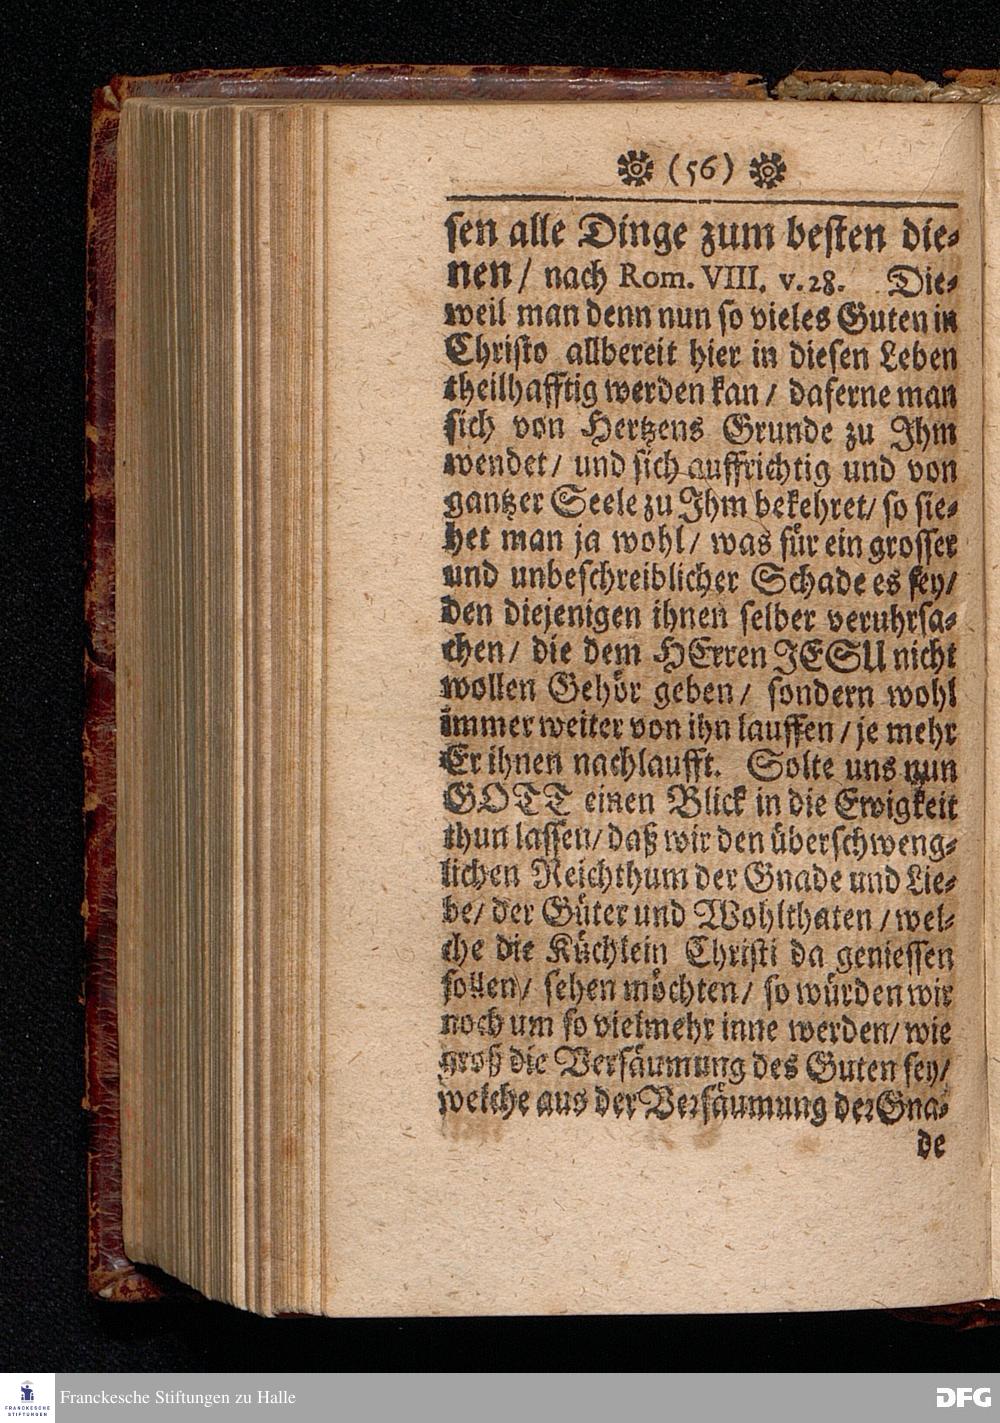 (56)
sen alle Dinge zum besten die-
nen/ nach Rom. VIII. v. 28. Die-
weil man denn nun so vieles Guten in
Christo allbereit hier in diesen Leben
theilhafftig werden kan/ daferne man
sich von Hertzens Grunde zu Ihm
wendet/ und sich auffrichtig und von
gantzer Seele zu Ihm bekehret/ so sie-
het man ja wohl/ was für ein grosser
und unbeschreiblicher Schade es sey/
den diejenigen ihnen selber veruhrsa-
chen/ die dem HErren JESU nicht
wollen Gehör geben/ sondern wohl
immer weiter von ihn lauffen/ je mehr
Er ihnen nachlaufft. Solte uns nun
GOTT einen Blick in die Ewigkeit
thun lassen/ daß wir den überschweng-
lichen Reichthum der Gnade und Lie-
be/ der Güter und Wohlthaten/ wel-
che die Küchlein Christi da geniessen
sollen/ sehen möchten/ so würden wir
noch um so vielmehr inne werden/ wie
groß die Versäumung des Guten sey/
welche aus der Versäumung der Gna-
de
FRANCKESCHE
STIFTUNGEN
Franckesche Stiftungen zu Halle
DFG